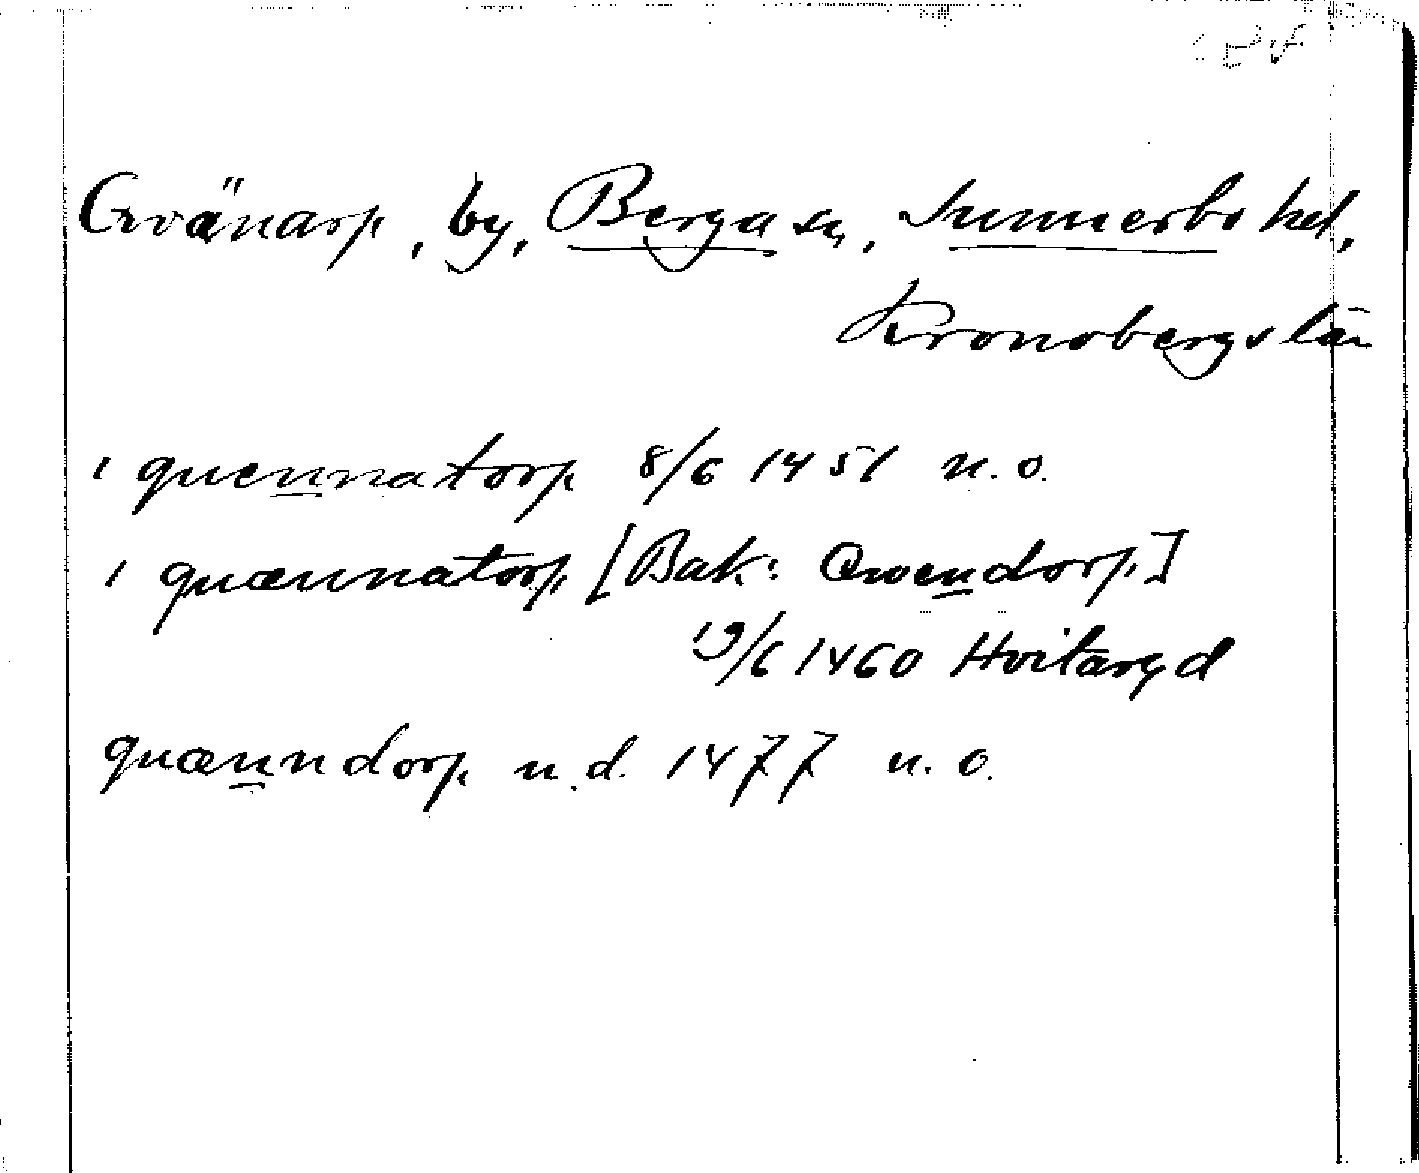 Qvänarp, by, Berga sn, Sunnerbo hd,
Kronobergs län
i quennatorp 8/6 1451 n. o.
i quænnatorp [Bak: Qwendorp]
19/6 1460 Hvitaryd
quænndorp u. d. 1477 n. o.